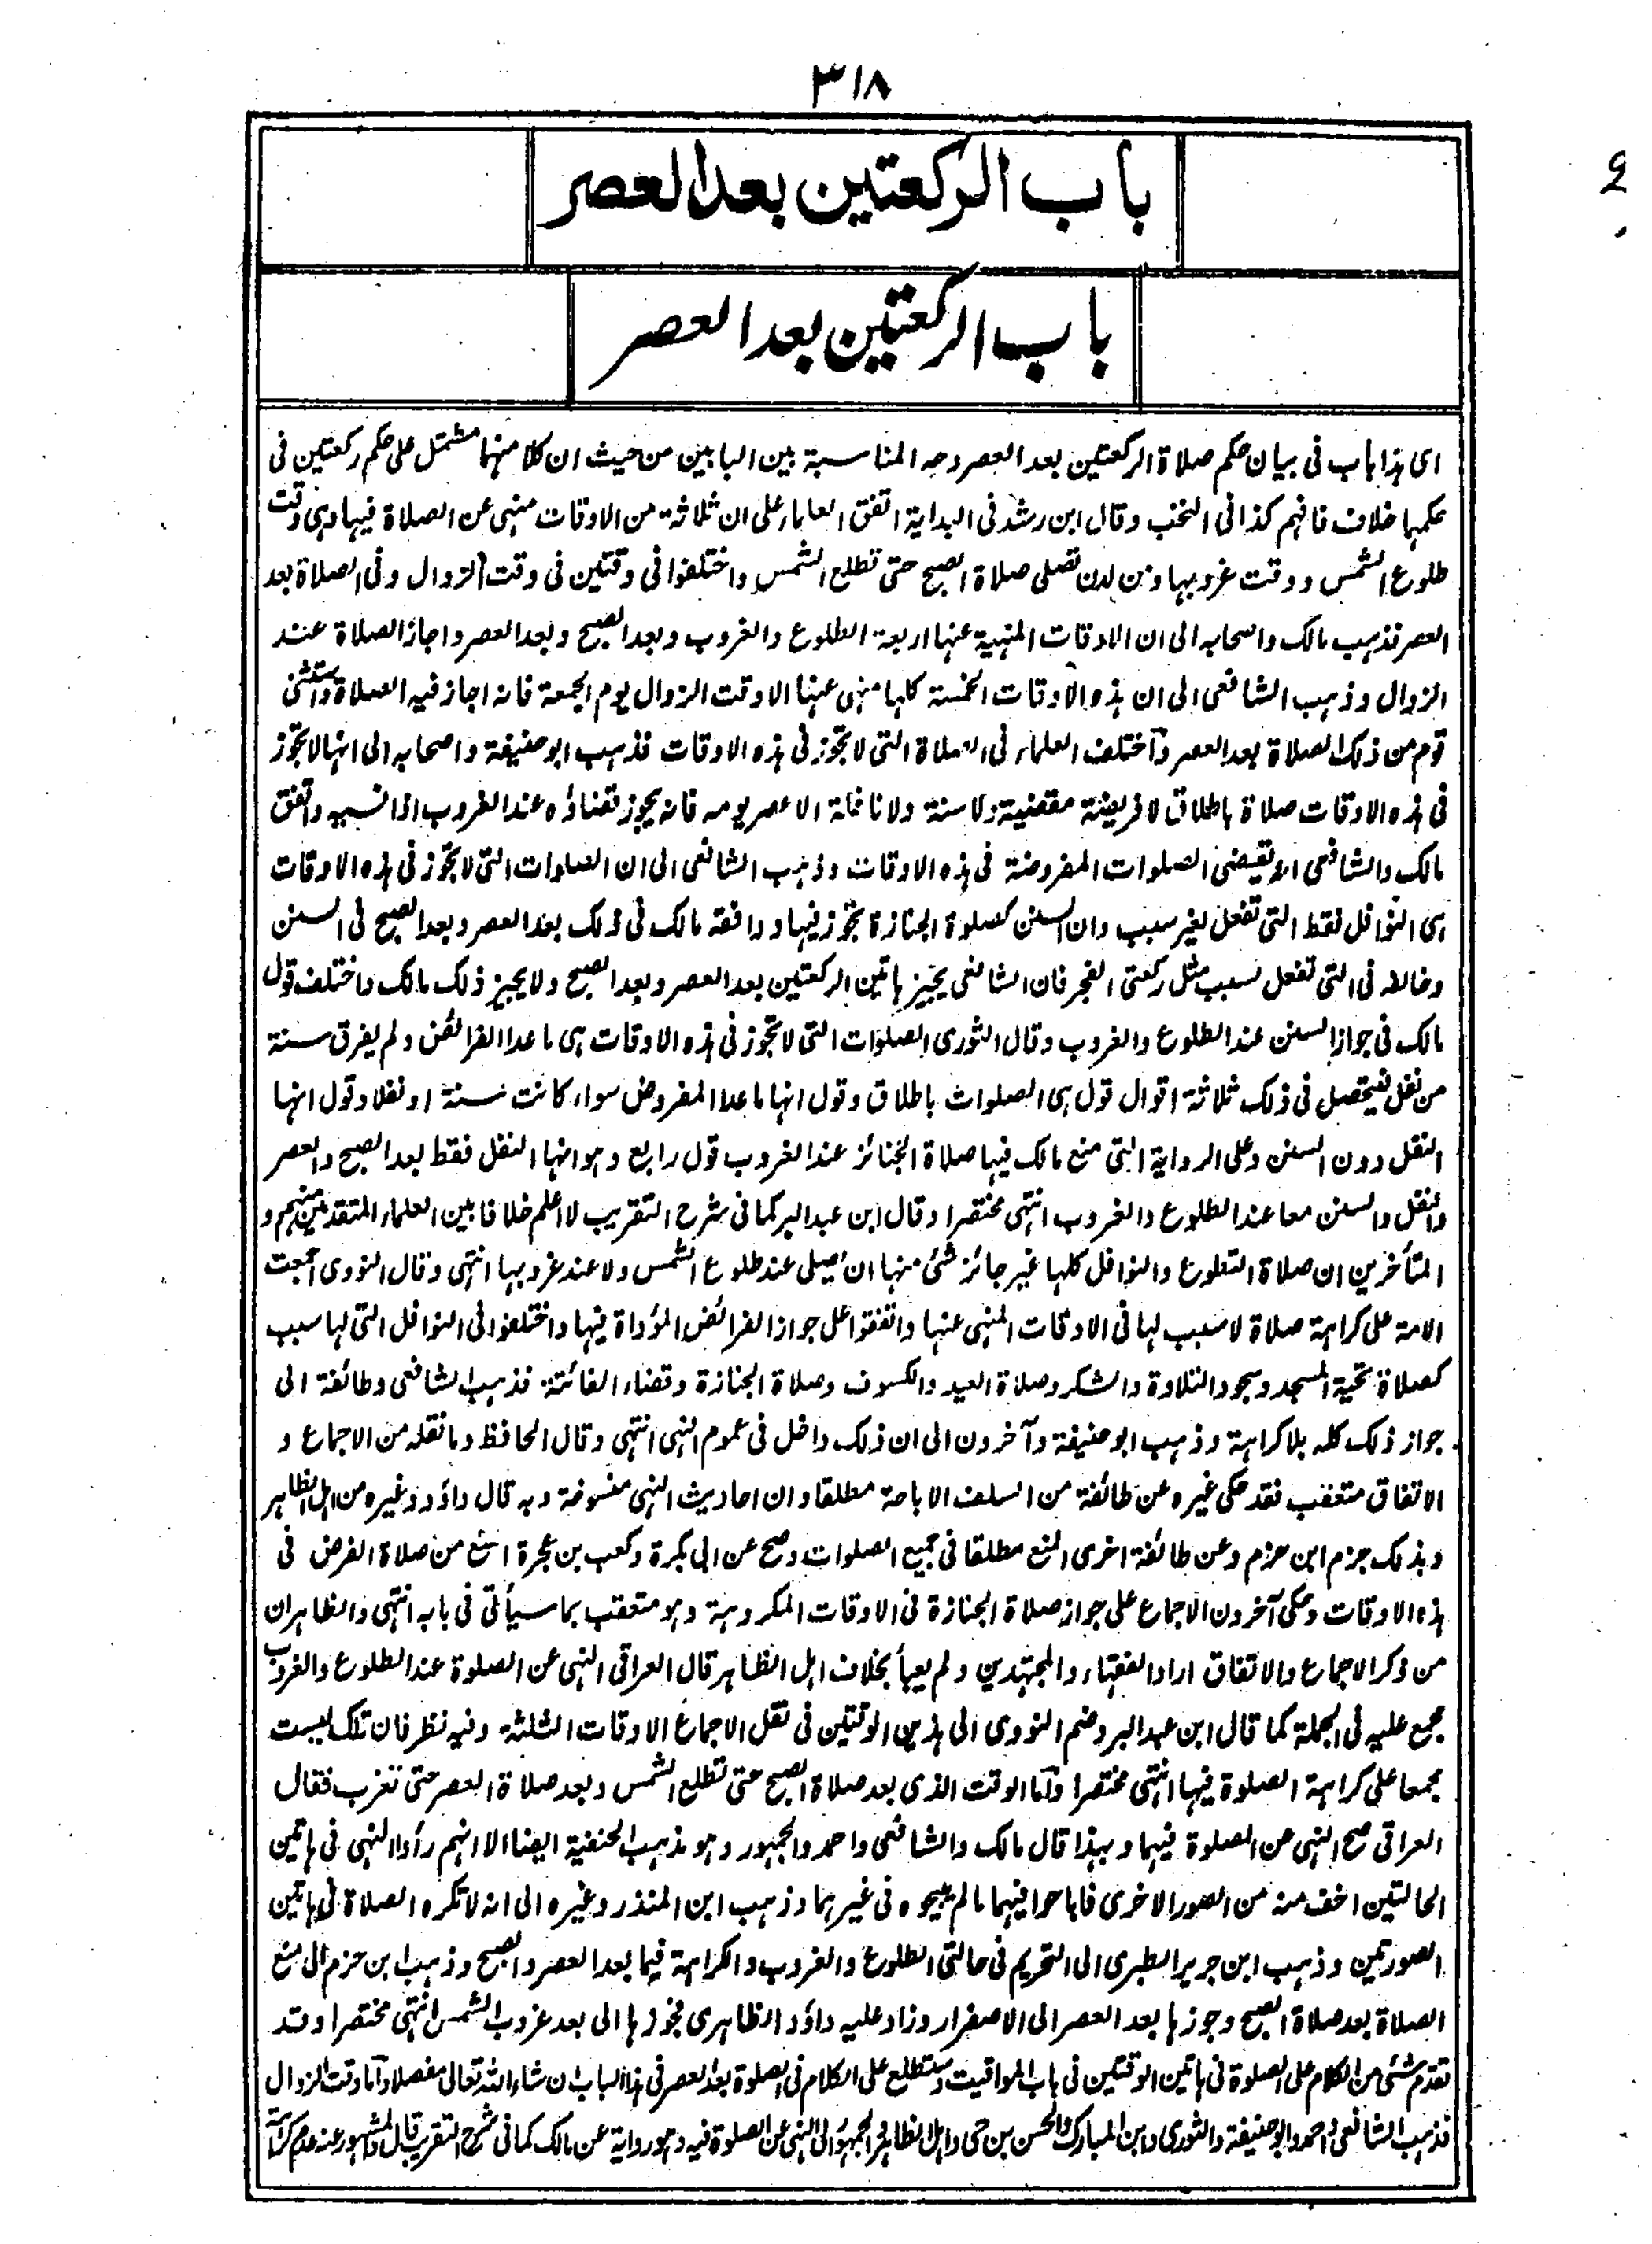 ٣١٨
باب الركعتين بعد العصر
باب الركعتين بعد العصر
اى هذا باب فى بيان حكم صلاة الركعتين بعد العصر وجه المناسبة بين البابين من حيث ان كلا منهما مشتمل على حكم ركعتين فى
حكمها خلاف فافهم كذا فى النخب وقال ابن رشد فى البداية اتفق العلماء على ان ثلاثة من الاوقات منهى عن الصلاة فيها وهى وقت
طلوع الشمس ووقت غروبها ومن لدن تصلى صلاة الصبح حتى تطلع الشمس واختلفوا فى وقتين فى وقت الزوال وفى الصلاة بعد
العصر فذهب مالك واصحابه الى ان الاوقات المنهية عنها اربعة الطلوع والغروب وبعد الصبح وبعد العصر واجاز الصلاة عند
الزوال وذهب الشافعى الى ان هذه الاوقات الخمسة كلها منهى عنها الا وقت الزوال يوم الجمعة فانه اجاز فيه الصلاة واستثنى
قوم من ذلك الصلاة بعد العصر وآختلف العلماء فى الصلاة التى لا تجوز فى هذه الاوقات فذهب ابو حنيفة واصحابه الى انها لا تجوز
فى هذه الاوقات صلاة باطلاق لا فريضة مقضية ولا سنة ولا نافلة الا عصر يومه فانه يجوز قضاؤه عند الغروب اذا نسيه واتفق
مالك والشافعى انه يقضى الصلوات المفروضة فى هذه الاوقات وذهب الشافعى الى ان الصلوات التى لا تجوز فى هذه الاوقات
هى النوافل فقط التى تفعل لغير سبب وان السنن كصلوة الجنازة تجوز فيها ووافقه مالك فى ذلك بعد العصر وبعد الصبح فى السنن
وخالفه فى التى تفعل لسبب مثل ركعتى الفجر فان الشافعى يجيز هاتين الركعتين بعد العصر وبعد الصبح ولا يجيز ذلك مالك واختلف قول
مالك فى جواز السنن عند الطلوع والغروب وقال الثورى الصلوات التى لا تجوز فى هذه الاوقات هى ما عدا الفرائض ولم يفرق سنة
من نفل فيتحصل فى ذلك ثلاثة اقوال قول هى الصلوات باطلاق وقول انها ما عدا المفروض سواء كانت سنة او نفلا وقول انها
النفل دون السنن وعلى الرواية التى منع مالك فيها صلاة الجنائز عند الغروب قول رابع وهو انها النفل فقط بعد الصبح والعصر
والنفل والسنن معا عند الطلوع والغروب انتهى مختصرا وقال ابن عبد البر كما فى شرح التقريب لا اعلم خلافا بين العلماء المتقدمين منهم و
المتأخرين ان صلاة التطوع والنوافل كلها غير جائز شئ منها ان يصلى عند طلوع الشمس ولا عند غروبها انتهى وقال النووى اجمعت
الامة على كراهة صلاة لا سبب لها فى الاوقات المنهى عنها واتفقوا على جواز الفرائض المؤداة فيها واختلفوا فى النوافل التى لها سبب
كصلاة تحية المسجد وسجود التلاوة والشكر وصلاة العيد والكسوف وصلاة الجنازة وقضاء الفائتة فذهب الشافعى وطائفة الى
جواز ذلك كله بلا كراهة وذهب ابو حنيفة وآخرون الى ان ذلك داخل فى عموم النهى انتهى وقال الحافظ وما نقله من الاجماع و
الاتفاق متعقب فقد حكى غيره عن طائفة من السلف الاباحة مطلقا وان احاديث النهى منسوخة وبه قال داؤد وغيره من اهل الظاهر
وبذلك جزم ابن حزم وعن طائفة اخرى المنع مطلقا فى جميع الصلوات وصح عن ابى بكرة وكعب بن عجرة المنع من صلاة الفرض فى
هذه الاوقات وحكى آخرون الاجماع على جواز صلاة الجنازة فى الاوقات المكروهة وهو متعقب بما سيأتى فى بابه انتهى والظاهر ان
من ذكر الاجماع والاتفاق اراد الفقهاء والمجتهدين ولم يعبأ بخلاف اهل الظاهر قال العراقى النهى عن الصلوة عند الطلوع والغروب
مجمع عليه فى الجملة كما قال ابن عبد البر وضم النووى الى هذين الوقتين فى نقل الاجماع الاوقات الثلثة وفيه نظر فان تلك ليست
مجمعا على كراهة الصلوة فيها انتهى مختصرا وآما الوقت الذى بعد صلاة الصبح حتى تطلع الشمس وبعد صلاة العصر حتى تغرب فقال
العراقى صح النهى عن الصلوة فيهما وبهذا قال مالك والشافعى واحمد والجمهور وهو مذهب الحنفية ايضا الا انهم رأوا النهى فى هاتين
الحالتين اخف منه من الصور الاخرى فاباحوا فيهما ما لم يبيحوه فى غيرهما وذهب ابن المنذر وغيره الى انه لا تكره الصلاة فى هاتين
الصورتين وذهب ابن جرير الطبرى الى التحريم فى حالتى الطلوع والغروب والكراهة فيما بعد العصر والصبح وذهب ابن حزم الى منع
الصلاة بعد صلاة الصبح وجوزها بعد العصر الى الاصفرار وزاد عليه داؤد الظاهرى فجوزها الى بعد غروب الشمس انتهى مختصرا وقد
تقدم شئ من الكلام على الصلوة فى هاتين الوقتين فى باب المواقيت وستطلع على الكلام فى الصلوة بعد العصر فى هذا الباب ان شاء الله تعالى مفصلا وآما وقت الزوال
فذهب الشافعى واحمد وابو حنيفة والثورى وابن المبارك والحسن بن حى واهل الظاهر والجمهور الى النهى عن الصلوة فيه وهو رواية عن مالك كما فى شرح التقريب قال والمشهور عنه عدم كراهة